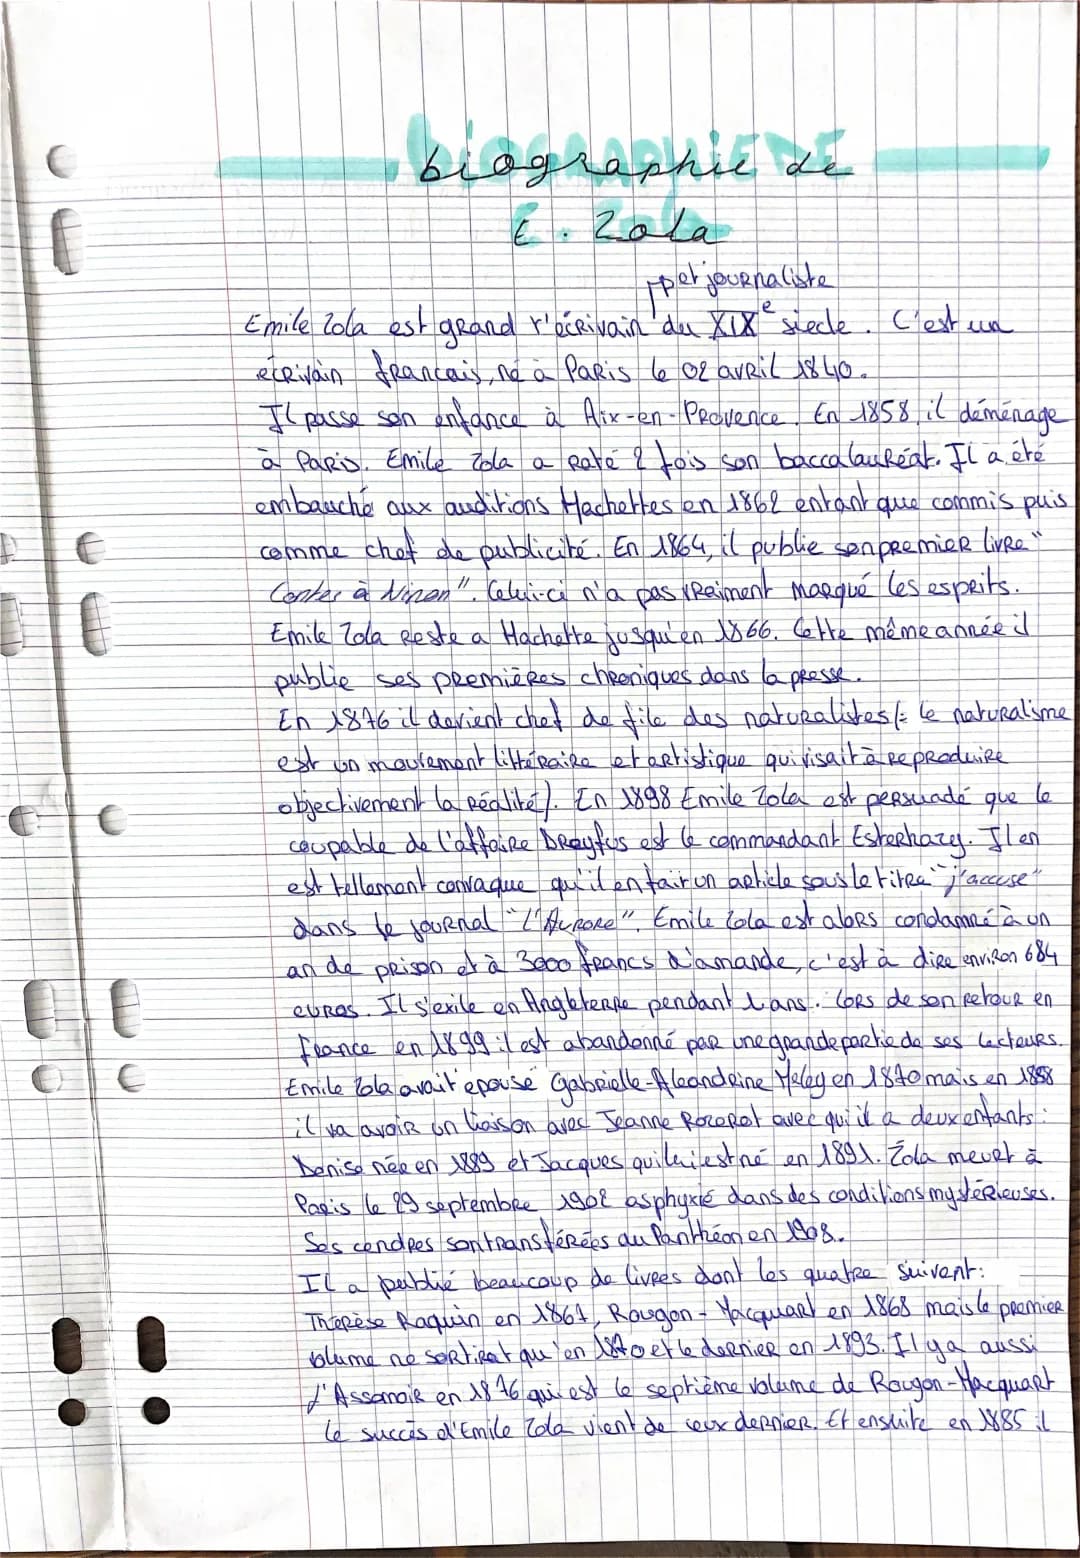 biographie de
E. Zola
et journaliste
Emile Zola est grand l'écrivain du XIXe siecle. C'est un
écrivain francais, né à Paris le 02 avril 1840.
Il passe son enfance à Aix-en-Provence. En 1858, il déménage
à Paris. Emile Zola a raté 2 fois son baccalauréat. Il a été
embauché aux auditions Hachettes en 1862 entant que commis puis
comme chef de publicité. En 1864, il publie son premier livre "
Contes à Ninon". Celui-ci n'a pas vraiment marqué les esprits.
Emile Zola reste a Hachette jusqu'en 1866. Cette même année il
publie ses premières chroniques dans la presse.
En 1876 il devient chef de file des naturalistes (= le naturalisme
est un mouvement littéraire et artistique qui visait à reproduire
objectivement la réalité). En 1898 Emile Zola est persuadé que le
coupable de l'affaire Dreyfus est le commandant Esterhazy. Il en
est tellement convaque qu'il en fait un article sous le titre "j'accuse"
dans le journal "L'Aurore". Emile Zola est alors condamné à un
an de prison et à 3000 francs d'amande, c'est à dire environ 684
euros. Il s'exile en Angleterre pendant 1 ans. Lors de son retour en
france en 1899 il est abandonné par une grande partie de ses lecteurs.
Emile Zola avait épousé Gabrielle-Aleandrine Meley en 1870 mais en 1888
il va avoir un liaison avec Jeanne Rozerot avec qui il a deux enfants :
Denise née en 1889 et Jacques qui lui est né en 1891. Zola meurt à
Paris le 29 septembre 1902 asphyxié dans des conditions mystérieuses.
Ses cendres sont transférées au Panthéon en 1908.
Il a publié beaucoup de livres dont les quatre suivant :
Thérèse Raquin en 1867, Rougon-Macquart en 1868 mais le premier
volume ne sortirat qu'en 1870 et le dernier en 1893. Il y a aussi
L'Assomoir en 1876 qui est le septième volume de Rougon-Macquart
le succès d'Emile Zola vient de ceux dernier. Et ensuite en 1885 il